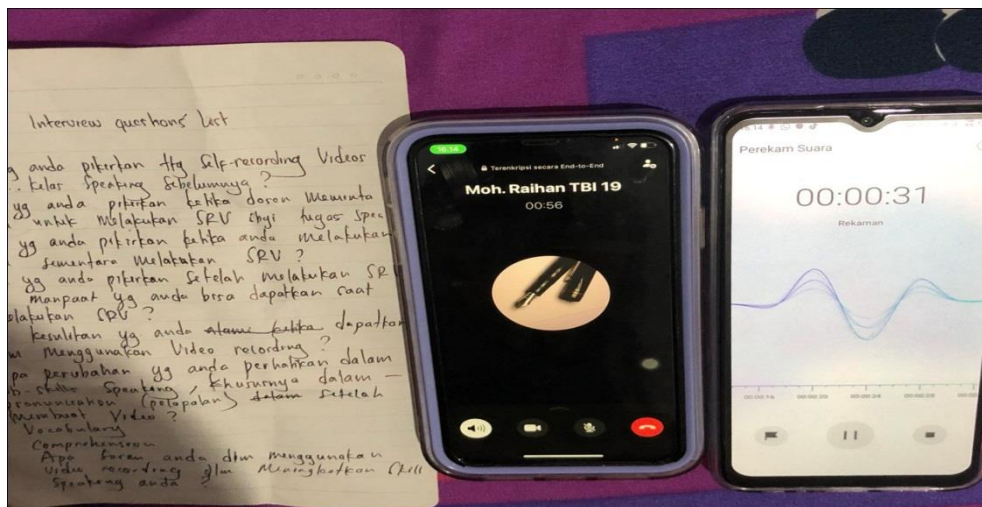 Interview questhons' List
anda pikirkan ttg Self-recording Videos
kelas Speaking Sebelumnya ?
yg anda pikirkan ketika dosen Meminta
untuk Melakukan SRV sbgi tugas Spea
yg anda pikirkan ketika anda Melakukan
Sementara Melakukan SRV ?
yg anda pikirkan Setelah Melakukan SR
Manpaat yg anda bisa dapatkan Saat
lakukan SRV ?
Kesulitan yg anda alami ketika dapatkan
Menggunakan Video recording ?
pa perubahan yg anda perhatikan dalam
b-skills Speaking, khususnya dalam –
pronunciation (pelapalan) dalam Setelah
Membuat Video ?
Vocabulary
Comprehension
Apa Saran anda dlm menggunakan
Video recording dlm Meningkatkan Skill
Speaking anda ?
16.14
Terenkripsi secara End-to-End
Moh. Raihan TBI 19
00:56
Perekam Suara
00:00:31
Rekaman
00:00:16 00:00:20 00:00:24 00:00:28